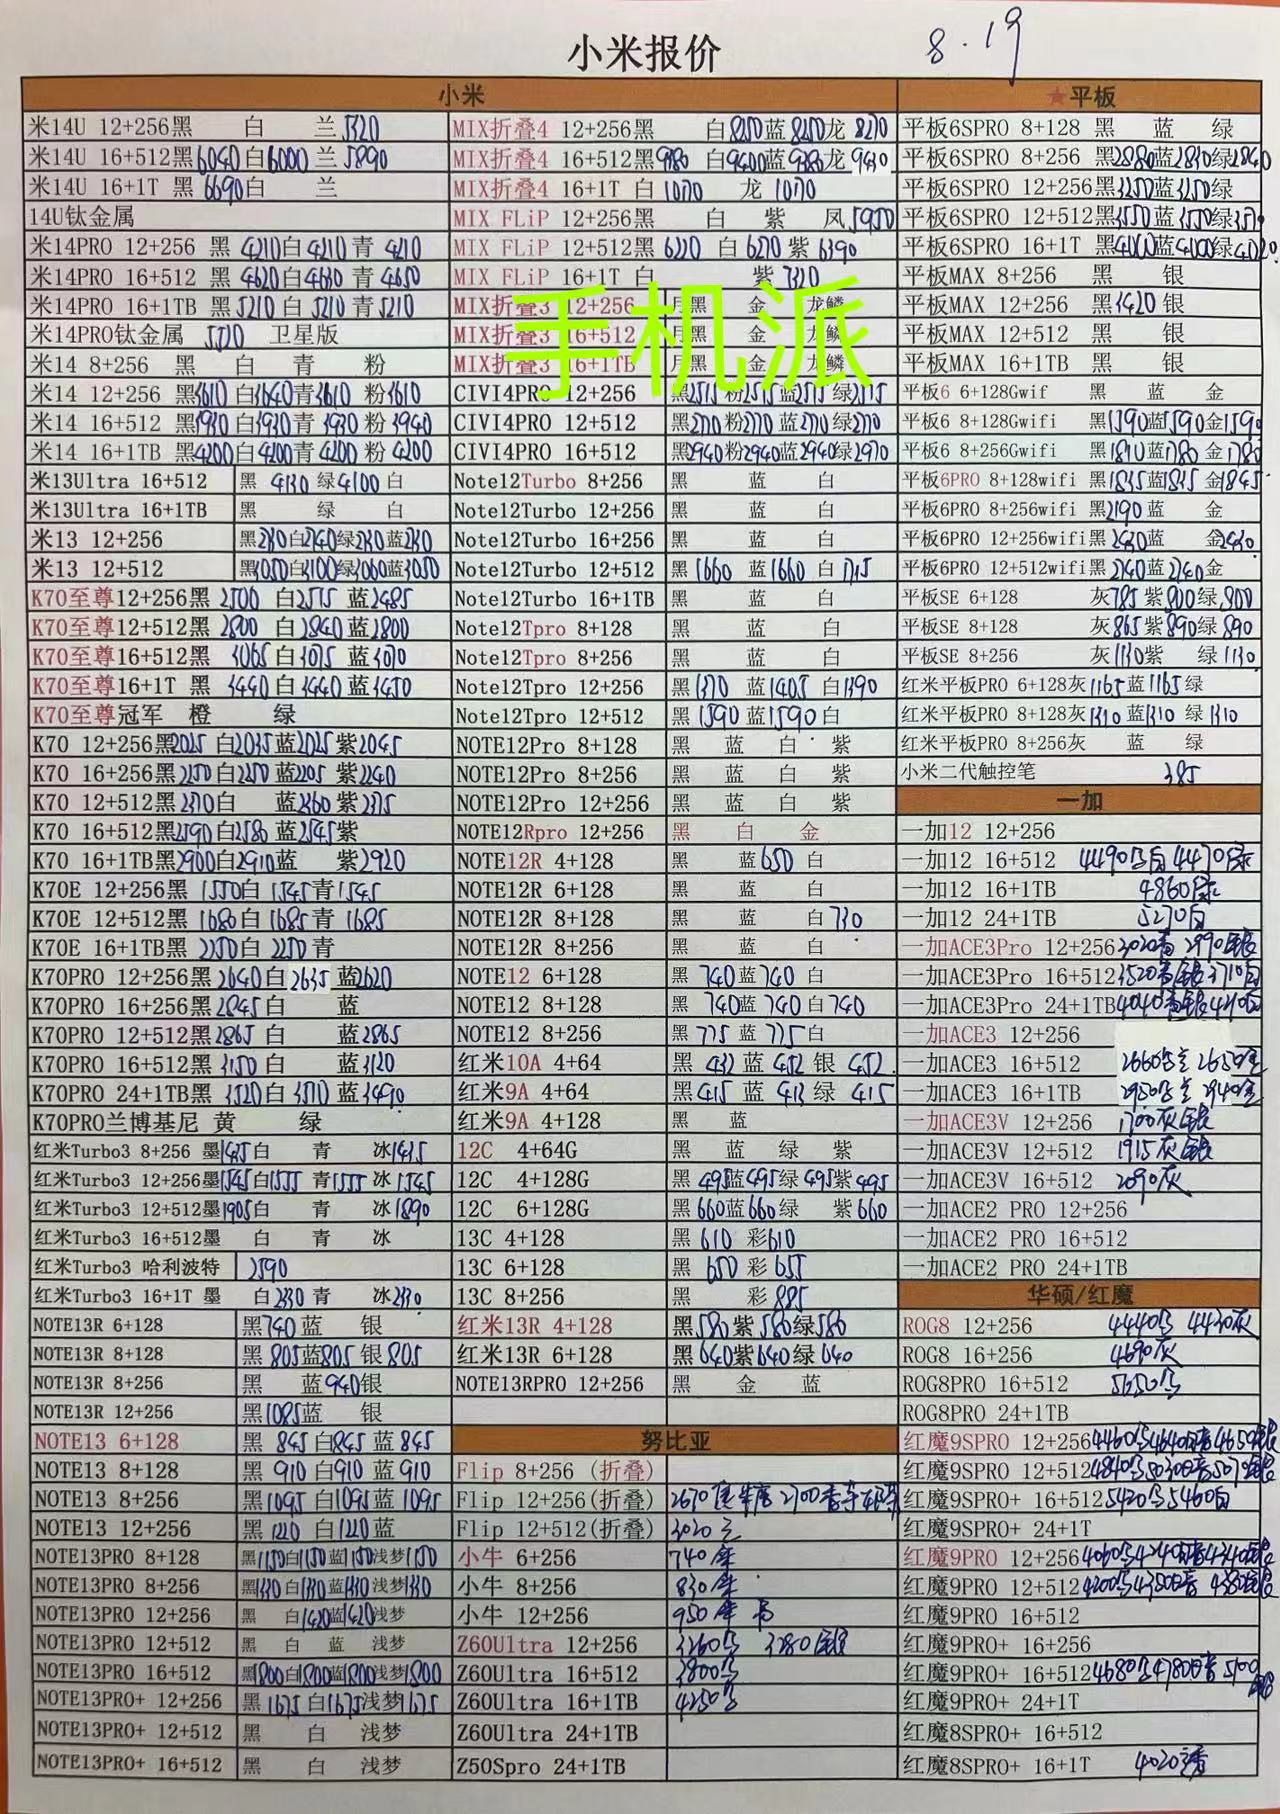 小米报价 8.19
小米
米14U 12+256黑 白 兰5320
米14U 16+512黑6040白6000兰5890
米14U 16+1T 黑6690白 兰
14U钛金属
米14PRO 12+256 黑 4210白4210青 4210
米14PRO 16+512 黑 4620白4630青4650
米14PRO 16+1TB黑5210白 5210青5210
米14PRO钛金属 卫星版
米14 8+256 黑 白 青 粉
米14 12+256 黑3610 白3640青3610 粉3610
米14 16+512 黑3930白3930青 3930粉3940
米14 16+1TB 黑4200白4200青4200 粉4200
米13Ultra 16+512 黑 4130 绿4100 白
米13Ultra 16+1TB 黑 绿 白
米13 12+256
米13 12+512 黑3050白3100绿3060蓝3050
K70至尊12+256黑 2500 白2515 蓝2485
K70至尊12+512黑 2800 白2840蓝2800
K70至尊16+512黑 3065白3075 蓝3070
K70至尊16+1T 黑 3440白3440蓝3450
K70至尊冠军 橙 绿
K70 12+256黑2025 白2035蓝2025紫2045
K70 16+256黑2250白2250蓝2205 紫2240
K70 12+512黑2370白 蓝2360紫2375
K70 16+512黑2590白2580蓝2545紫
K70 16+1TB黑2900白2910蓝 紫2920
K70E 12+256黑 1550白 1545青1545
K70E 12+512黑 1680白1685青 1685
K70E 16+1TB黑 2250白2250青
K70PRO 12+256黑2640白2635 蓝2620
K70PRO 16+256黑2845白 蓝
K70PRO 12+512黑2865白 蓝2865
K70PRO 16+512黑 3150白 蓝3120
K70PRO 24+1TB黑 3520白3510蓝3490
K70PRO兰博基尼 黄 绿
红米Turbo3 8+256 墨1425白 青 冰1425
红米Turbo3 12+256墨1545白1555 青1555冰1545
红米Turbo3 12+512墨1905白 青 冰1890
红米Turbo3 16+512墨 白 青 冰
红米Turbo3 哈利波特 2590
红米Turbo3 16+1T 墨 白2330青 冰2330
NOTE13R 6+128 黑740蓝 银
NOTE13R 8+128 黑805蓝805银805
NOTE13R 8+256 黑 蓝940银
NOTE13R 12+256 黑1085蓝 银
NOTE13 6+128 黑 845白845 蓝845
NOTE13 8+128 黑 910白910 蓝910
NOTE13 8+256 黑1095白1095蓝1095
NOTE13 12+256 黑1220 白1220蓝
NOTE13PRO 8+128 黑1150白1150蓝1150浅梦1150
NOTE13PRO 8+256 黑1330白1330蓝1330浅梦1330
NOTE13PRO 12+256 黑 白1420蓝1420浅梦
NOTE13PRO 12+512 黑 白 蓝 浅梦
NOTE13PRO 16+512 黑1800白1800蓝1800浅梦1800
NOTE13PRO+ 12+256 黑1675白1675浅梦1675
NOTE13PRO+ 12+512 黑 白 浅梦
NOTE13PRO+ 16+512 黑 白 浅梦
MIX折叠4 12+256黑 白8250蓝8250龙8270
MIX折叠4 16+512黑9380 白9400蓝9380龙9430
MIX折叠4 16+1T 白 龙
MIX FLiP 12+256黑 白 紫 凤5950
MIX FLiP 12+512黑6220 白6270紫6390
MIX FLiP 16+1T 白 紫7320
MIX折叠3 12+256 月黑 金 龙鳞
MIX折叠3 16+512 月黑 金 龙鳞
MIX折叠3 16+1TB 月黑 金 龙鳞
手机派
CIVI4PRO 12+256 黑2515粉2515蓝2515绿2515
CIVI4PRO 12+512 黑2770粉2770蓝2770绿2770
CIVI4PRO 16+512 黑2940粉2940蓝2940绿2970
Note12Turbo 8+256 黑 蓝 白
Note12Turbo 12+256 黑 蓝 白
Note12Turbo 16+256 黑 蓝 白
Note12Turbo 12+512 黑1660 蓝1660 白1715
Note12Turbo 16+1TB 黑 蓝 白
Note12Tpro 8+128 黑 蓝 白
Note12Tpro 8+256 黑 蓝 白
Note12Tpro 12+256 黑1370 蓝1405 白1390
Note12Tpro 12+512 黑1590蓝1590白
NOTE12Pro 8+128 黑 蓝 白 紫
NOTE12Pro 8+256 黑 蓝 白 紫
NOTE12Pro 12+256 黑 蓝 白 紫
NOTE12Rpro 12+256 黑 白 金
NOTE12R 4+128 黑 蓝650 白
NOTE12R 6+128 黑 蓝 白
NOTE12R 8+128 黑 蓝 白730
NOTE12R 8+256 黑 蓝 白
NOTE12 6+128 黑740蓝740 白
NOTE12 8+128 黑 740蓝740白740
NOTE12 8+256 黑775蓝775白
红米10A 4+64 黑 432 蓝 452 银 452
红米9A 4+64 黑415 蓝 413 绿 415
红米9A 4+128 黑 蓝
12C 4+64G 黑 蓝 绿 紫
12C 4+128G 黑495蓝495绿495紫495
12C 6+128G 黑660蓝660绿 紫660
13C 4+128 黑 610 彩610
13C 6+128 黑 650 彩655
13C 8+256 黑 彩885
红米13R 4+128 黑580紫580绿580
红米13R 6+128 黑640紫640绿640
NOTE13RPRO 12+256 黑 金 蓝
努比亚
Flip 8+256 (折叠)
Flip 12+256(折叠)
Flip 12+512(折叠)
小牛 6+256
小牛 8+256
小牛 12+256
Z60Ultra 12+256 3260乌 3280银
Z60Ultra 16+512 3800乌
Z60Ultra 16+1TB 4250乌
Z60Ultra 24+1TB
Z50Spro 24+1TB
★平板
平板6SPRO 8+128 黑 蓝 绿
平板6SPRO 8+256 黑2880蓝2830绿2840
平板6SPRO 12+256黑3250蓝3250绿
平板6SPRO 12+512黑3550蓝3550绿3570
平板6SPRO 16+1T 黑4000蓝4000绿4020
平板MAX 8+256 黑 银
平板MAX 12+256 黑3420银
平板MAX 12+512 黑 银
平板MAX 16+1TB 黑 银
平板6 6+128Gwif 黑 蓝 金
平板6 8+128Gwifi 黑1590蓝1590金1590
平板6 8+256Gwifi 黑1810蓝1780 金1780
平板6PRO 8+128wifi 黑1835蓝1835 金1845
平板6PRO 8+256wifi 黑2190蓝 金
平板6PRO 12+256wifi黑2430蓝 金2430
平板6PRO 12+512wifi黑2740蓝2740金
平板SE 6+128 灰785紫800绿800
平板SE 8+128 灰865紫890绿890
平板SE 8+256 灰1130紫 绿1130
红米平板PRO 6+128灰1165蓝1165绿
红米平板PRO 8+128灰1310蓝1310 绿1310
红米平板PRO 8+256灰 蓝 绿
小米二代触控笔 385
一加
一加12 12+256
一加12 16+512 4490乌白 4470绿
一加12 16+1TB 4860绿
一加12 24+1TB 5270白
一加ACE3Pro 12+256 3020青 2990银
一加ACE3Pro 16+512 3520青银3710白
一加ACE3Pro 24+1TB
一加ACE3 12+256
一加ACE3 16+512
一加ACE3 16+1TB
一加ACE3V 12+256 1700灰银
一加ACE3V 12+512 1915灰银
一加ACE3V 16+512 2090灰
一加ACE2 PRO 12+256
一加ACE2 PRO 16+512
一加ACE2 PRO 24+1TB
华硕/红魔
ROG8 12+256 4440乌 4430灰
ROG8 16+256 4690灰
ROG8PRO 16+512 5650乌
ROG8PRO 24+1TB
红魔9SPRO 12+256
红魔9SPRO 12+512
红魔9SPRO+ 16+512 5420乌5460白
红魔9SPRO+ 24+1T
红魔9PRO 12+256
红魔9PRO 12+512
红魔9PRO 16+512
红魔9PRO+ 16+256
红魔9PRO+ 16+512
红魔9PRO+ 24+1T
红魔8SPRO+ 16+512
红魔8SPRO+ 16+1T